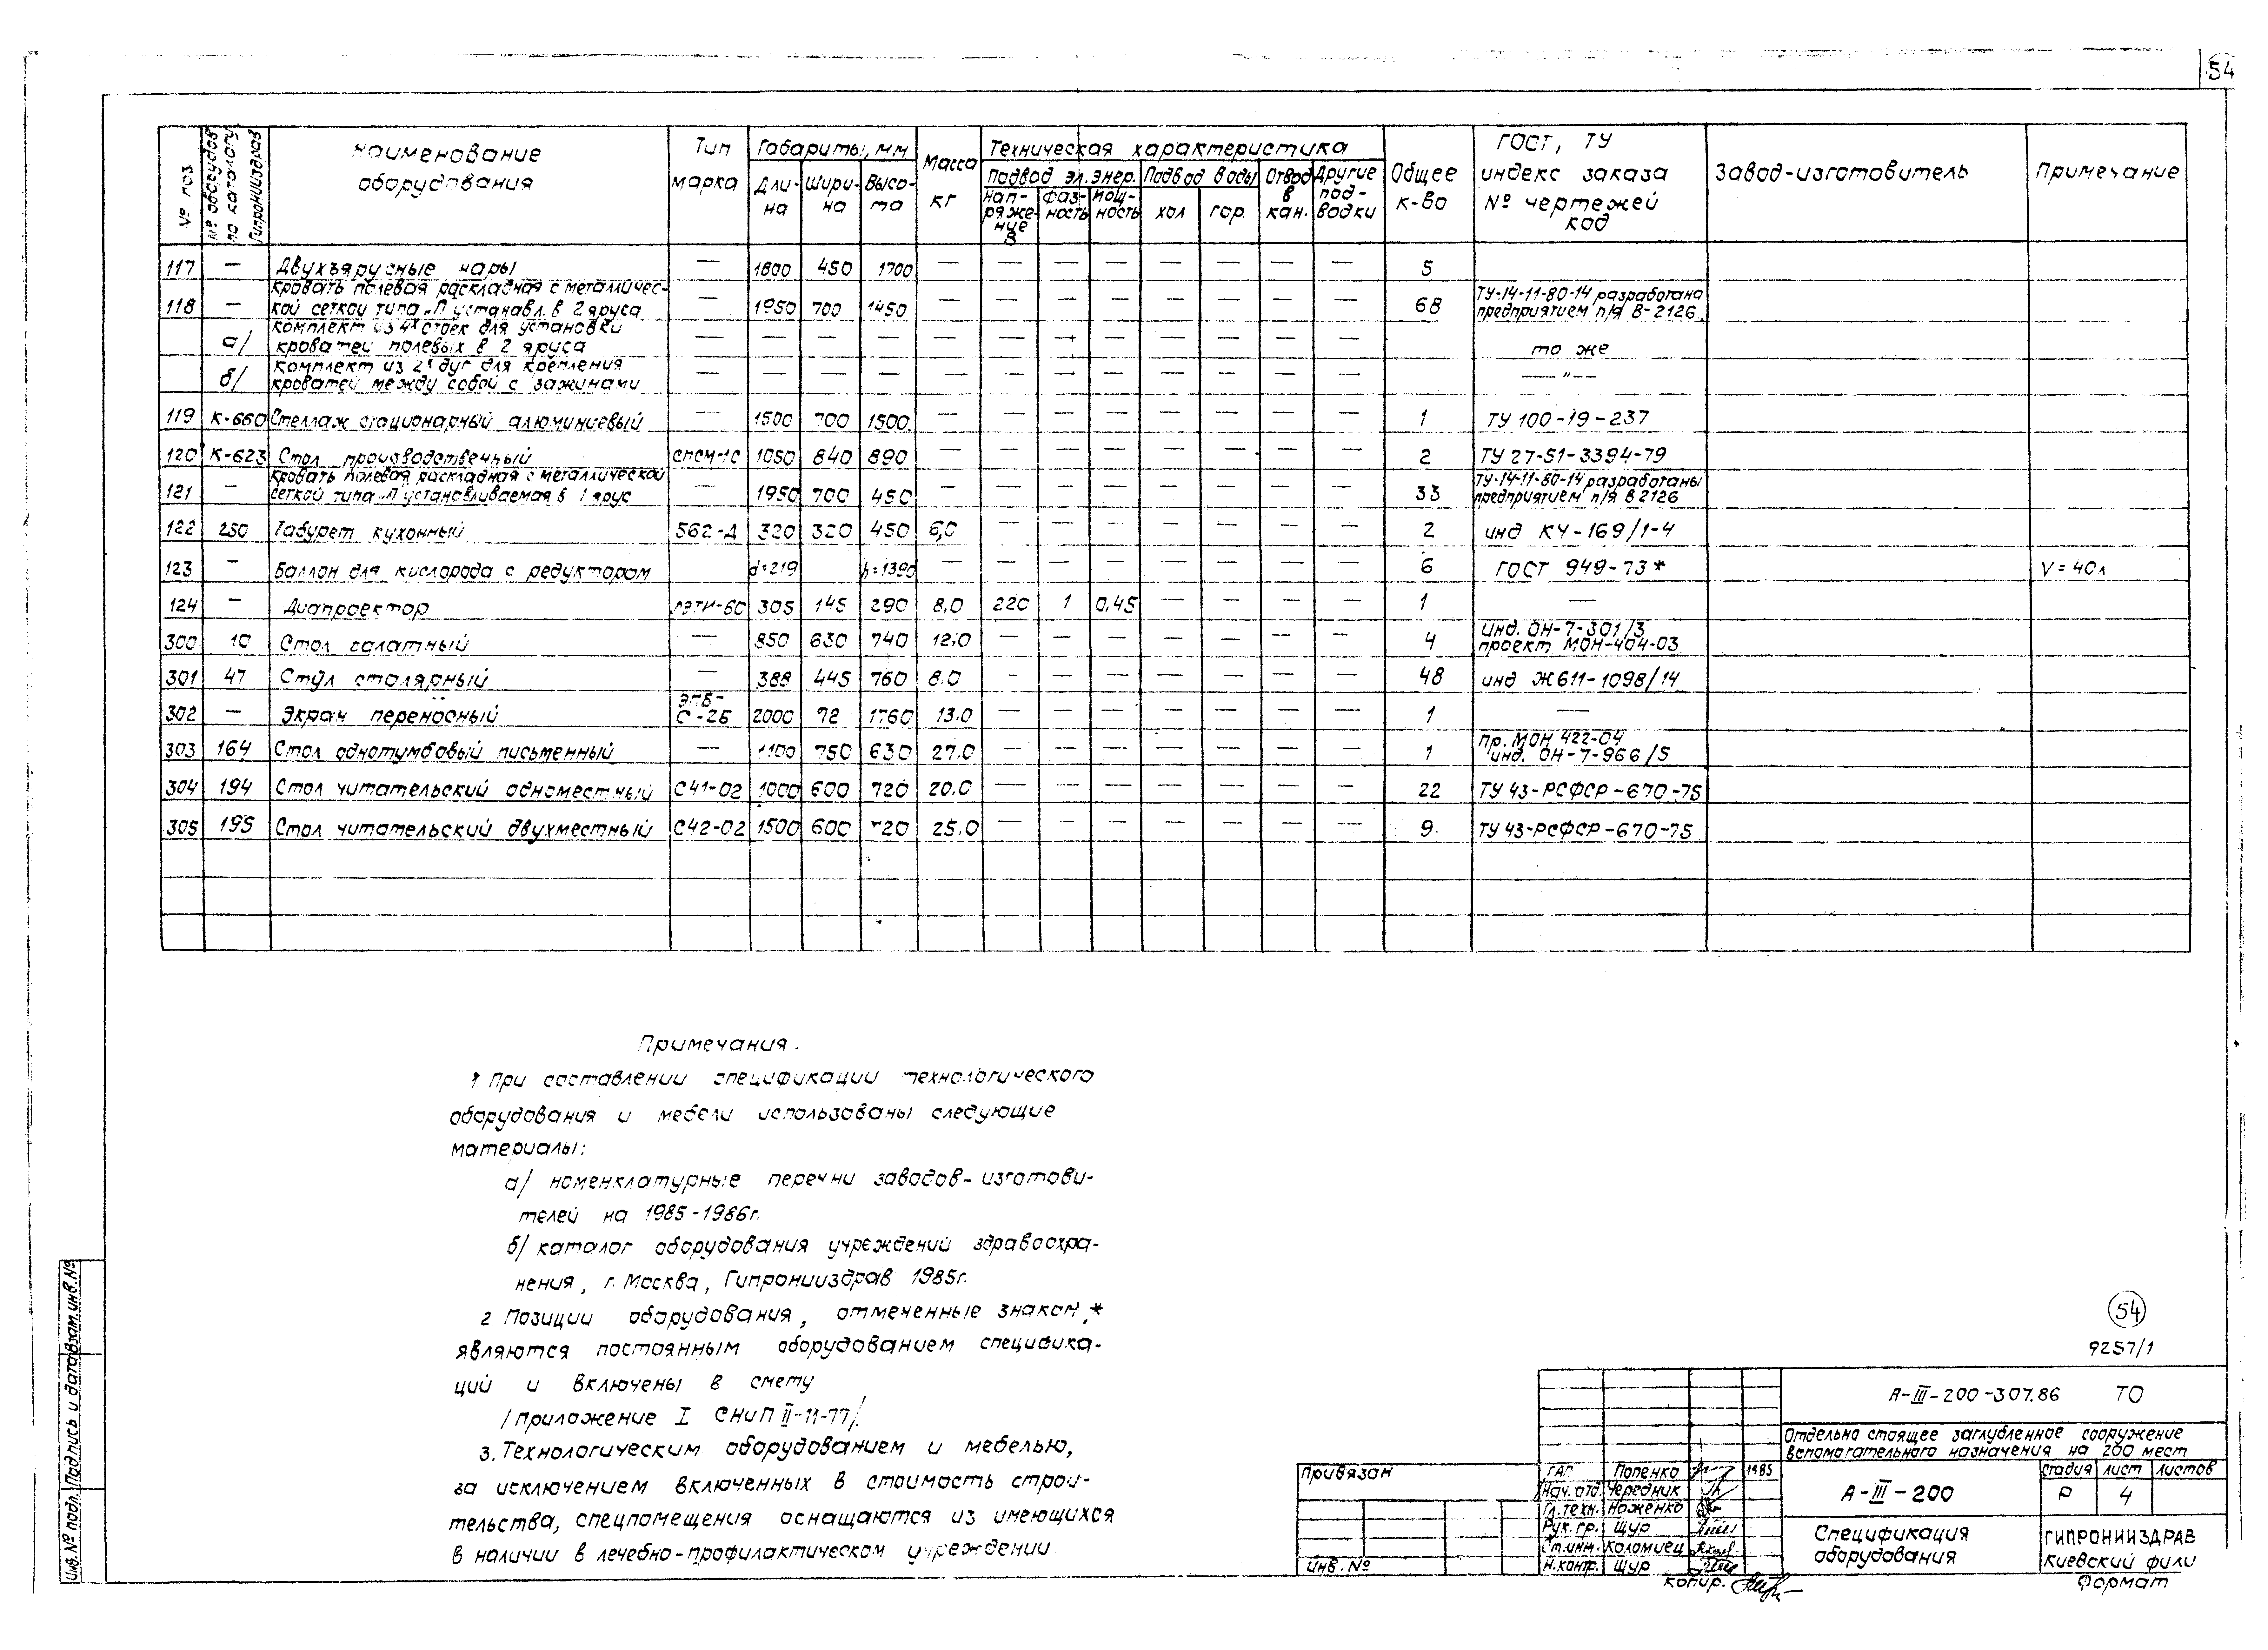 54
№ поз
№ оборудов по каталогу Гипрониииздрав
Наименование оборудования
Тип марка
Габариты, мм
Дли-на
Шири-на
Высо-та
Масса кг
Техническая характеристика
Подвод эл.энер.
Нап-ряже-ние В
Фаз-ность
Мощ-ность
Подвод воды
хол
гор.
Отвод в кан.
Другие под-водки
Общее к-во
ГОСТ, ТУ индекс заказа № чертежей код
Завод-изготовитель
Примечание
117 — Двухъярусные нары — 1800 450 1700 — — — — — — — — 5
118 — Кровать полевая раскладная с металличес-
кой сеткой типа „П устанавл. в 2 яруса — 1950 700 1450 — — — — — — — — 68 ТУ-14-11-80-14 разработана
предприятием п/я В-2126
а/ комплект из 4х стоек для установки
кроватей полевых в 2 яруса — — — — — — — — — — — — то же
б/ комплект из 2х дуг для крепления
кроватей между собой с зажинами — — — — — — — — — — — — — " —
119 К-660 Стеллаж стационарный алюминиевый — 1500 700 1500 — — — — — — — — 1 ТУ 100-19-237
120 К-623 Стол производственный СПСМ-1С 1050 840 890 — — — — — — — — 2 ТУ 27-51-3394-79
121 — Кровать полевая раскладная с металлической
сеткой типа „П устанавливаемая в 1 ярус — 1950 700 450 — — — — — — — — 33 ТУ-14-11-80-14 разработаны
предприятием п/я В 2126
122 250 Табурет кухонный 562-Д 320 320 450 6,0 — — — — — — — 2 инд КУ-169/1-4
123 — Баллон для кислорода с редуктором d=219 h=1390 — — — — — — — — 6 ГОСТ 949-73* V=40л
124 — Диапроектор ЛЭТИ-60 305 145 290 8,0 220 1 0,45 — — — — 1 —
300 10 Стол салатный — 850 630 740 12.0 — — — — — — — 4 инд. ОН-7-301/3
проект МОН-404-03
301 47 Стул столярный — 388 445 760 8.0 — — — — — — — 48 инд Ж611-1098/14
302 — Экран переносный ЭПБ-
С-2Б 2000 72 1760 13.0 — — — — — — — 1 —
303 164 Стол однотумбовый письменный — 1100 750 630 27.0 — — — — — — — 1 Пр. МОН 422-04
инд. ОН-7-966/5
304 194 Стол читательский одноместный С41-02 1000 600 720 20.0 — — — — — — — 22 ТУ 43-РСФСР-670-75
305 195 Стол читательский двухместный С42-02 1500 600 720 25.0 — — — — — — — 9. ТУ 43-РСФСР-670-75
Примечания.
1. При составлении спецификации технологического
оборудования и мебели использованы следующие
материалы:
а/ номенклатурные перечни заводов-изготови-
телей на 1985-1986г.
б/ каталог оборудования учреждений здравоохра-
нения, г. Москва, Гипронииздрав 1985г.
2 Позиции оборудования, отмеченные знаком „*
являются постоянным оборудованием специфика-
ций и включены в смету
/приложение I СНиП II-11-77/.
3. Технологическим оборудованием и мебелью,
за исключением включенных в стоимость строи-
тельства, спецпомещения оснащаются из имеющихся
в наличии в лечебно-профилактическом учреждении
54
9257/1
А-III-200-307.86 ТО
Отдельно стоящее заглубленное сооружение
вспомогательного назначения на 200 мест
А-III-200
стадия лист листов
Р 4
Спецификация
оборудования
ГИПРОНИИЗДРАВ
Киевский фили
Формат
Привязан
Инв.№
ГАП Попенко 1985
Нач. отд. Чередник
Гл.техн.Ноженко
Рук. гр. Щур
Ст.инж. Коломиец
Н.контр. Щур
Копир.
Инв. № подл. Подпись и дата Взам.инв.№